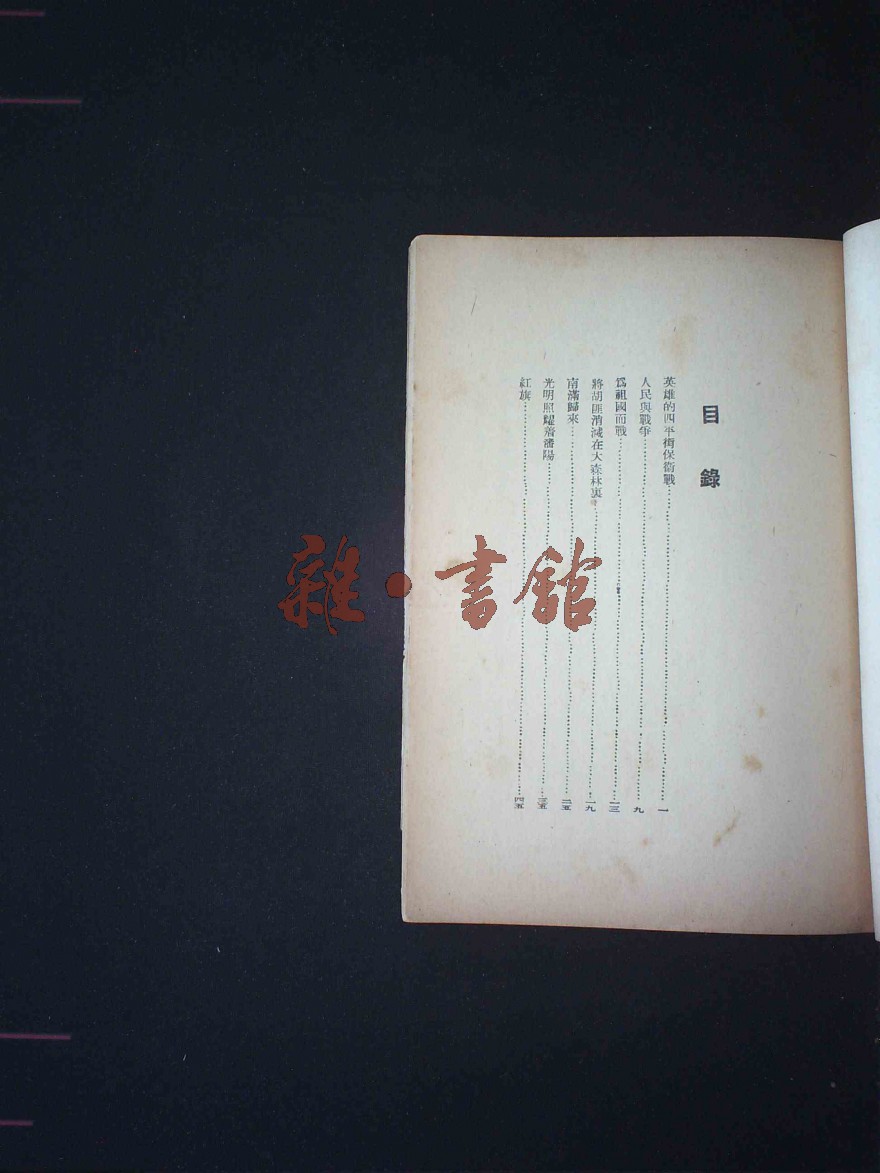 目錄
英雄的四平街保衛戰 一
人民與戰爭 九
爲祖國而戰 一三
將胡匪消滅在大森林裏 一九
南滿歸來 二五
光明照耀着瀋陽 三五
紅旗 四五
雜·書館